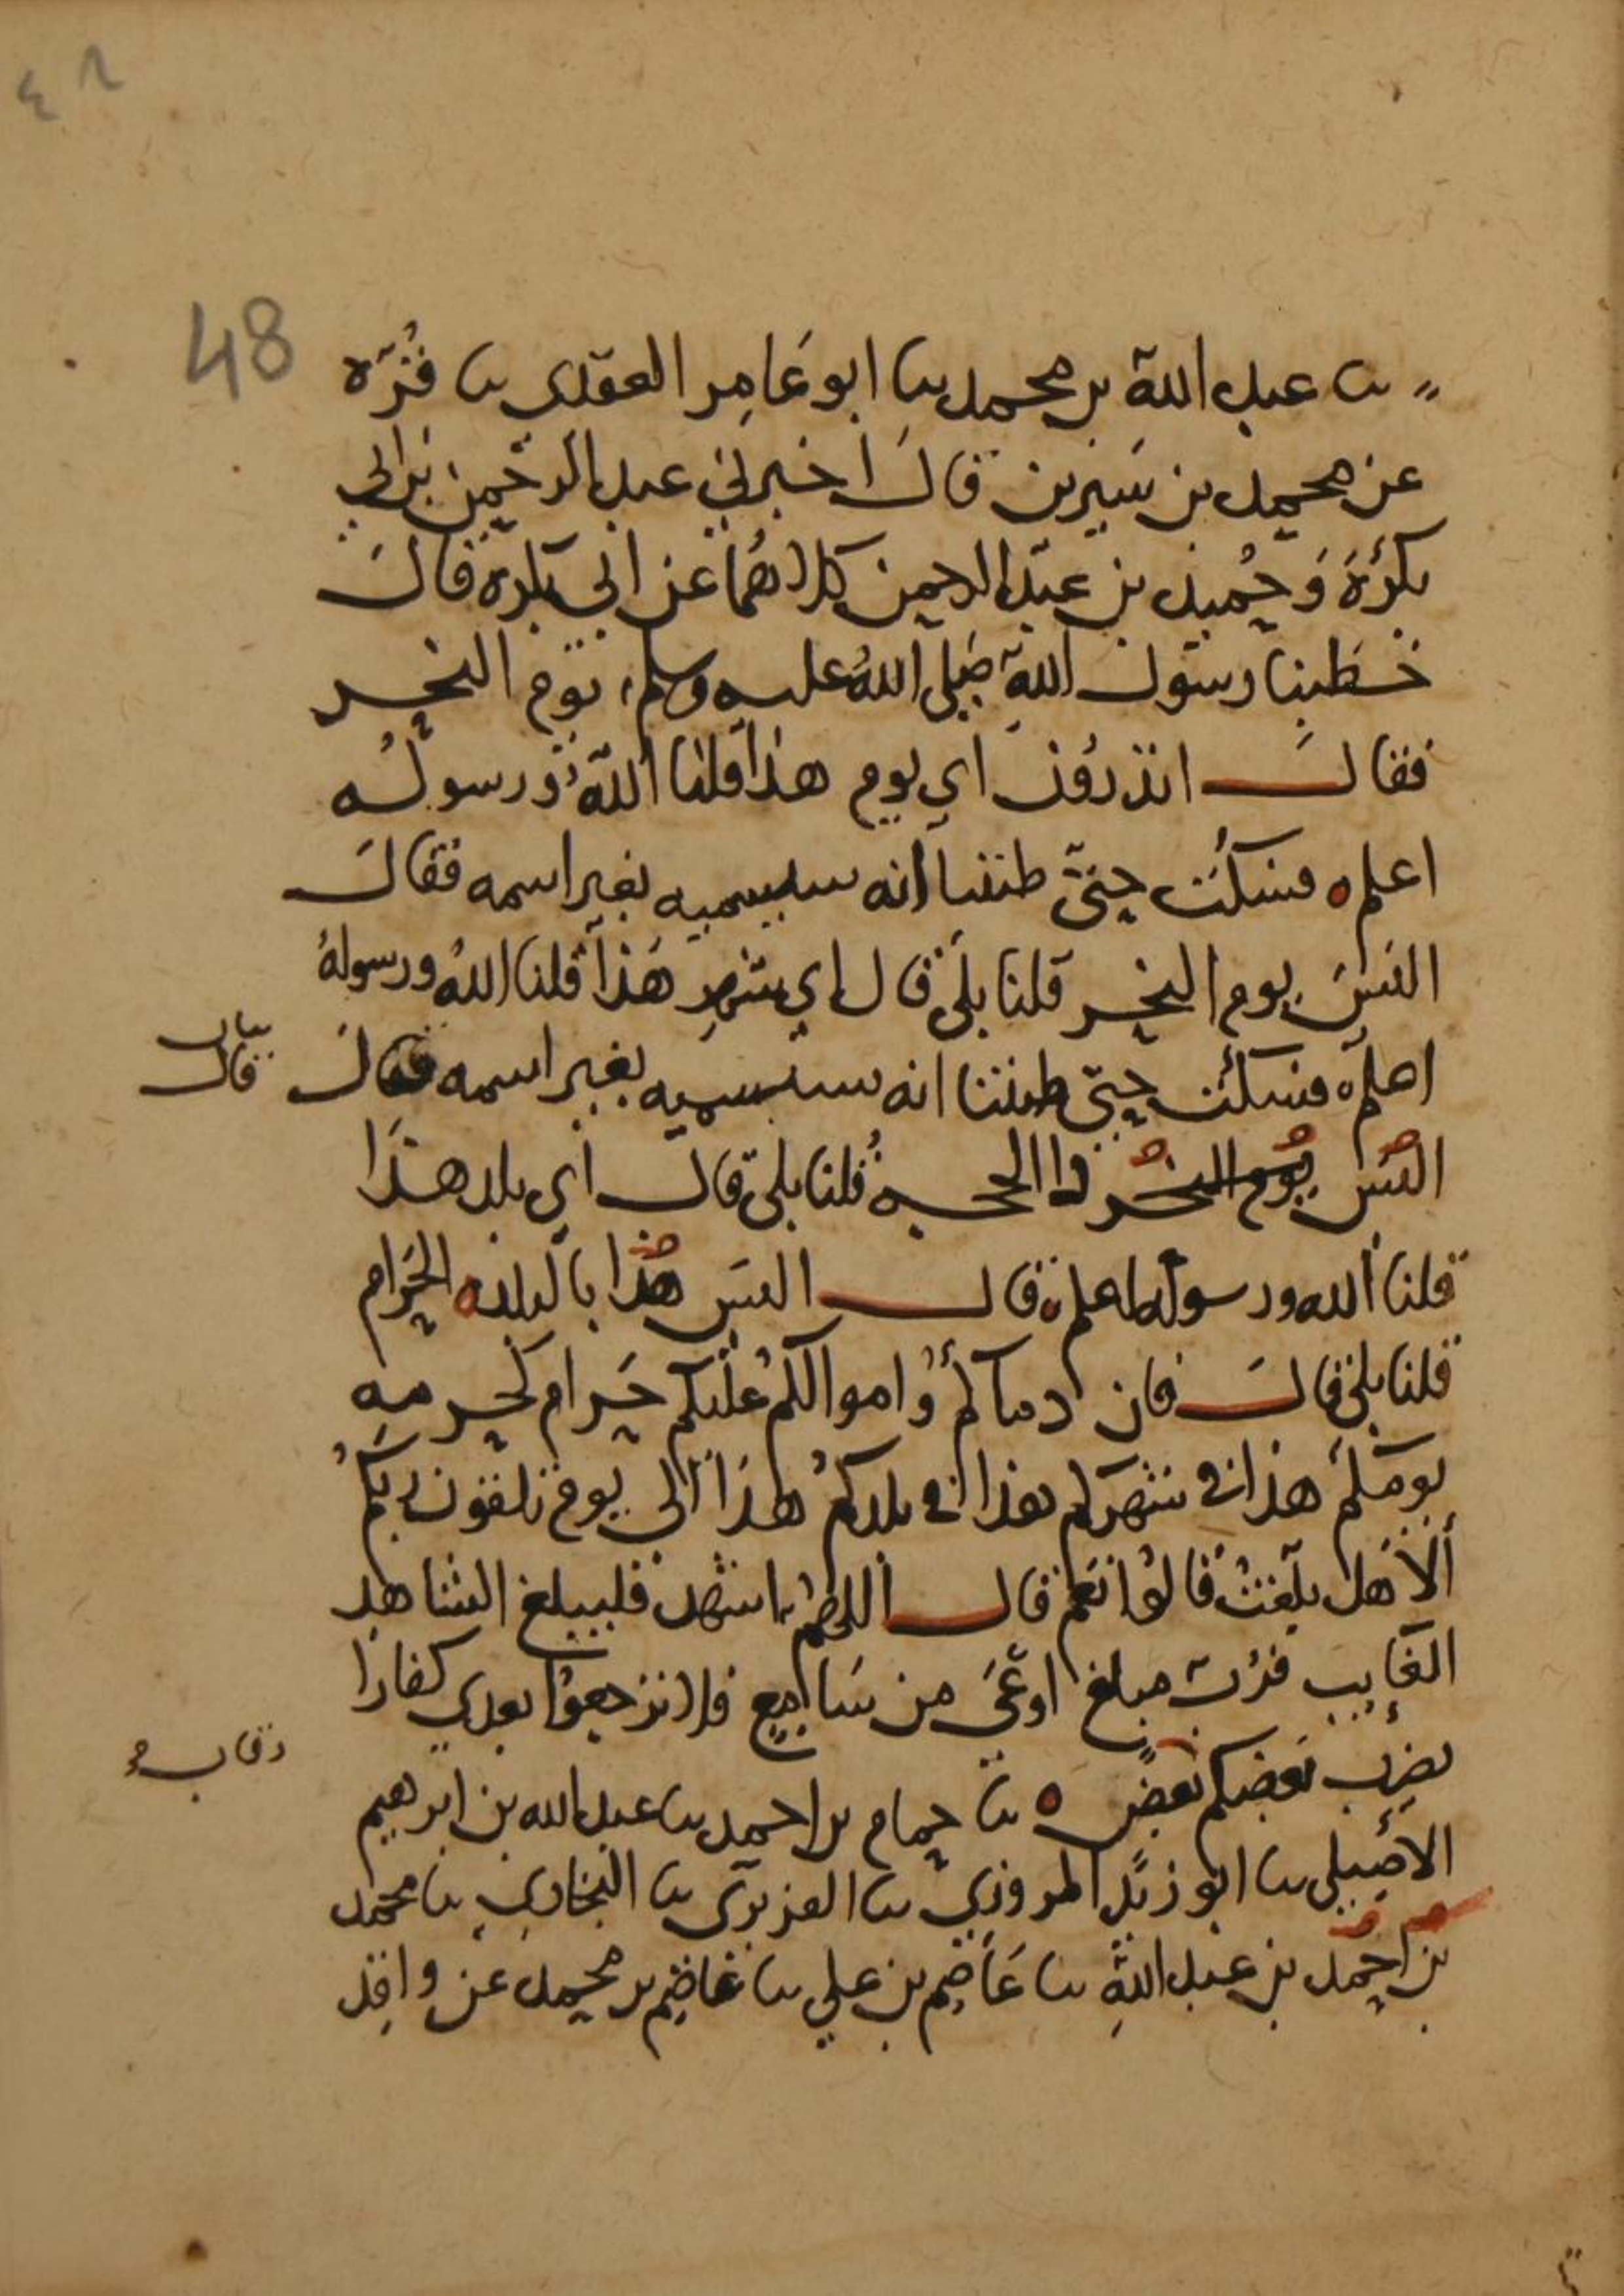 ٤٨
48
ثنا عبد الله بن محمد ثنا ابو عَامِر العقدي ثنا قُرّه
عن محمد بن سيرين قال اخبرني عبد الرحمن بن ابي
بكرة وحُميد بن عبد الرحمن كلاهُما عن ابي بكرة قال
خطبنا رسول الله صلى اللهُ عليه وسلم يوم النحر
فقال اتدرون اي يوم هذا قلنا اللهُ ورسولُه
اعلم ه فسكت حتى ظننا انه سيسميه بغير اسمه فقال
اليسَ يوم النحر قلنا بلى قال اي شهرٍ هذا قلنا اللهُ ورسولهُ
اعلم ه فسكت حتى ظننا انه سيسميه بغير اسمه فقال
قال
اليس يوم النحر ذا الحجه قُلنا بلى قال اي بلد هذا
قلنا الله ورسوله اعلم ه قال اليس هذا بالبلده الحَرام
قلنا بلى قال فان دماكم واموالكم عليكم حَرام كحرمه
يومكم هذا في شهركم هذا في بلدكم هذا الى يوم تلقون ربكم
ألا هل بلغتُ قالوُا نعم قال اللهُم اشهد فليبلغ الشاهد
الغايب فرُبّ مبلغ اوعَى من سَامِع فلا ترجعوُا بعدي كفارًا
يضرب بعضكم بعضٍ ه ثنا حمام بن احمد ثنا عبد الله بن ابرهيم
رقاب
الاصيلي ثنا ابو زيد المروزي ثنا الفربري ثنا البخاري ثنا محمد
بن احمد بن عبد اللهِ ثنا عَاصِم بن علي ثنا عَاصِم بن محمد عن واقِد